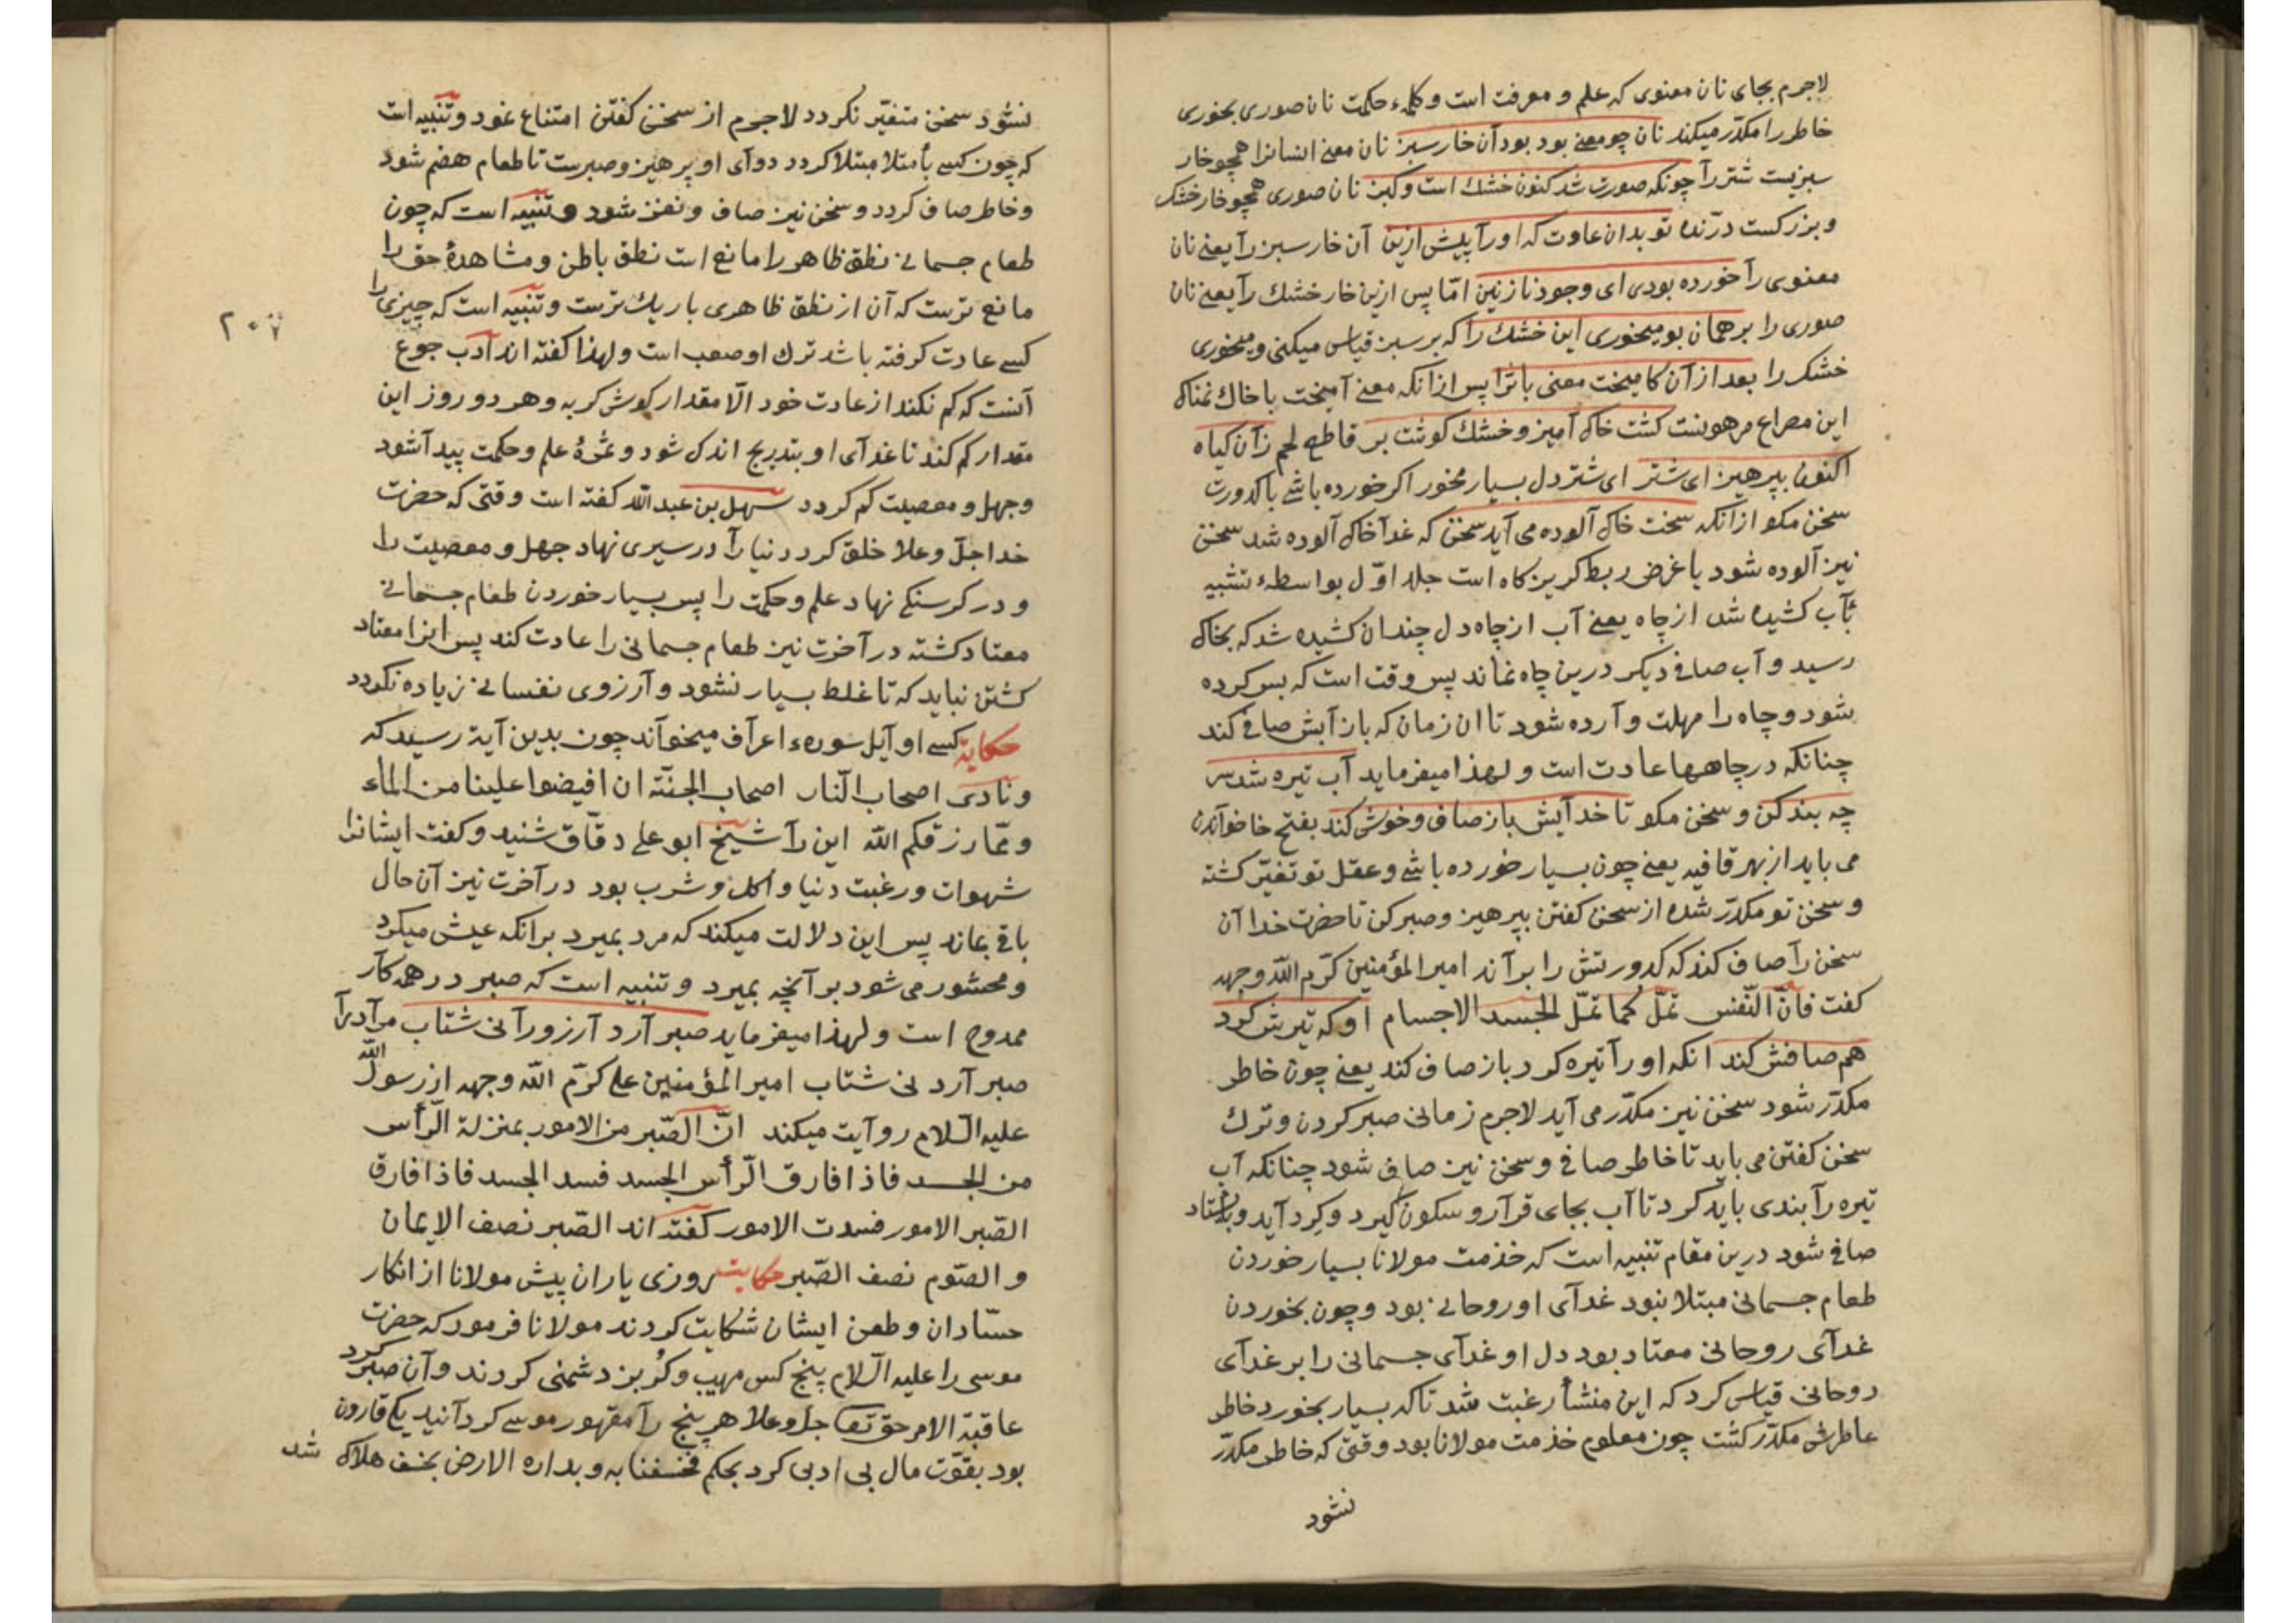 لاجرم بجای نان معنوی که علم و معرفت است و کلمهٔ حکمت نان صوری بخوری
خاطر را مکدّر میکند نان چو معنی بود بود آن خار سبز نان معنی انسانرا همچو خار
سبزیست شتر را چونکه صورت شد کنون خشک است و کبز نان صوری همچو خار خشک
و بزرکست درّنده تو بدان عادت که او را پیش ازین آن خار سبز را یعنی نان
معنوی را خورده بودی ای وجود نازنین امّا پس ازین خار خشک را یعنی نان
صوری را بر همان بو میخوری این خشک را که بر سبز قیاس میکنی و میخوری
خشک را بعد ازآن کامیخت معنی با ثرا پس ازانکه معنی آمیخت با خاک نمناک
این مصراع مرهونست کشت خاک آمیز و خشک کوشت بر قاطع لحم زآن کیاه
اکنون بپرهیز ای شتر ای شتردل بسیار مخور اکر خورده باشی با کدورت
سخن مکو ازانکه سخت خاک آلوده می آید سخن که غدا خاک آلوده شد سخن
نیز آلوده شود یا غرض ربط کریزکاه است جلد اوّل بواسطهٔ تشبیه
بآب کشیده شد از چاه یعنی آب از چاه دل چندان کشیده شد که بخاک
رسید و آب صافی دیکر درین چاه نماند پس وقت است که بس کرده
شود و چاه را مهلت و آرده شود تا ان زمان که باز آبش صافی کند
چنانکه در چاهها عادت است و لهذا میفرماید آب تیره شد سر
چه بند کن و سخن مکو تا خدایش باز صاف و خوش کند بفتح خا خواندن
می باید از بهر قافیه یعنی چون بسیار خورده باشی و عقل تو تغیّر کشته
و سخن تو مکدّر شده از سخن کفتن بپرهیز و صبر کن تا حضرت خدا آن
سخن را صاف کند که کدورتش را برآند امیر المؤمنین کرّم الله وجهه
کفت فانّ النّفس تملّ کما تملّ الجسد الاجسام او که تیرش کرد
هم صافش کند انکه او را تیره کرد باز صاف کند یعنی چون خاطر
مکدّر شود سخن نیز مکدّر می آید لاجرم زمانی صبر کردن و ترک
سخن کفتن می باید تا خاطر صافی و سخن نیز صافی شود چنانکه آب
تیره را بندی باید کرد تا آب بجای قرآر و سکون کیرد و کرد آید و باستاد
صافی شود درین مقام تنبیه است که خذمت مولانا بسیار خوردن
طعام جسمانی مبتلا نبود غدآی او روحانی بود و چون بخوردن
غدآی روحانی معتاد بود دل او غدآی جسمانی را بر غدآی
روحانی قیاس کرد که این منشأ رغبت شد تا که بسیار بخورد خاطر
عاطرش مکدّر کشت چون معلوم خذمت مولانا بود وقتی که خاطر مکدّر
نشود
نشود سخن متغیّر نکردد لاجرم از سخن کفتن امتناع نمود و تنبیه است
که چون کسی بأمتلا مبتلا کردد دوآی او پرهیز و صبرست تا طعام هضم شود
و خاطر صاف کردد و سخن نیز صاف و نغز شود و تنبیه است که چون
طعام جسمانی نطق ظاهر را مانع است نطق باطن و مشاهدهٔ حق را
مانع ترست که آن از نطق ظاهری باریک ترست و تنبیه است که چیزی را
کسی عادت کرفته باشد ترک او صعب است و لهذا کفته اند آدب جوع
آنست که کم نکند از عادت خود الّا مقدار کوش کربه و هر دو روز این
مقدار کم کند تا غدآی او بتدریج اندک شود و ثمرهٔ علم و حکمت پیدآ شود
و جهل و معصیت کم کردد سهل بن عبد الله کفته است وقتی که حضرت
خدا جلّ و علا خلق کرد دنیا را در سیری نهاد جهل و معصیت را
و در کرسنکی نهاد علم و حکمت را پس بسیار خوردن طعام جسمانی
معتاد کشته در آخرت نیز طعام جسمانی را عادت کند پس انرا معتاد
کشتن نباید که تا غلط بسیار نشود و آرزوی نفسانی زیاده نکردد
حکایة کسی اوآیل سورهٔ اعرآف میخوآند چون بدین آیة رسید که
ونادی اصحاب النّار اصحاب الجنّة ان افیضوا علینا من الماء
و ممّا رزقکم الله این را شیخ ابو علی دقّاق شنید و کفت ایشانرا
شهوات و رغبت دنیا و اکل و شرب بود در آخرت نیز آن حال
باقی بماند پس این دلالت میکند که مرد بمیرد برانکه عیش میکرد
و محشور می شود بر آنچه بمیرد و تنبیه است که صبر در همه کار
ممدوح است و لهذا میفرماید صبر آرد آرزو رآ نی شتاب مرآد رآ
صبر آرد نی شتاب امیر المؤمنین علی کرّم الله وجهه از رسول الله
علیه السّلام روآیت میکند انّ الصّبر من الامور بمنزلة الرّأس
من الجسد فاذا فارق الرّأس الجسد فسد الجسد فاذا فارق
الصّبر الامور فسدت الامور کفته اند الصّبر نصف الایمان
و الصّوم نصف الصّبر حکایت روزی یاران پیش مولانا از انکار
حسّادان و طعن ایشان شکایت کردند مولانا فرمود که حضرت
موسی را علیه السّلام پنج کس مهیب و کربز دشمنی کردند و آن صبر کرد
عاقبة الامر حق تعا جلّ و علا هر پنج رآ مقهور موسی کردآنید یکی قارون
بود بقوّت مال بی ادبی کرد بحکم فخسفنا به و بداره الارض بخسف هلاک شد
۲۰۷